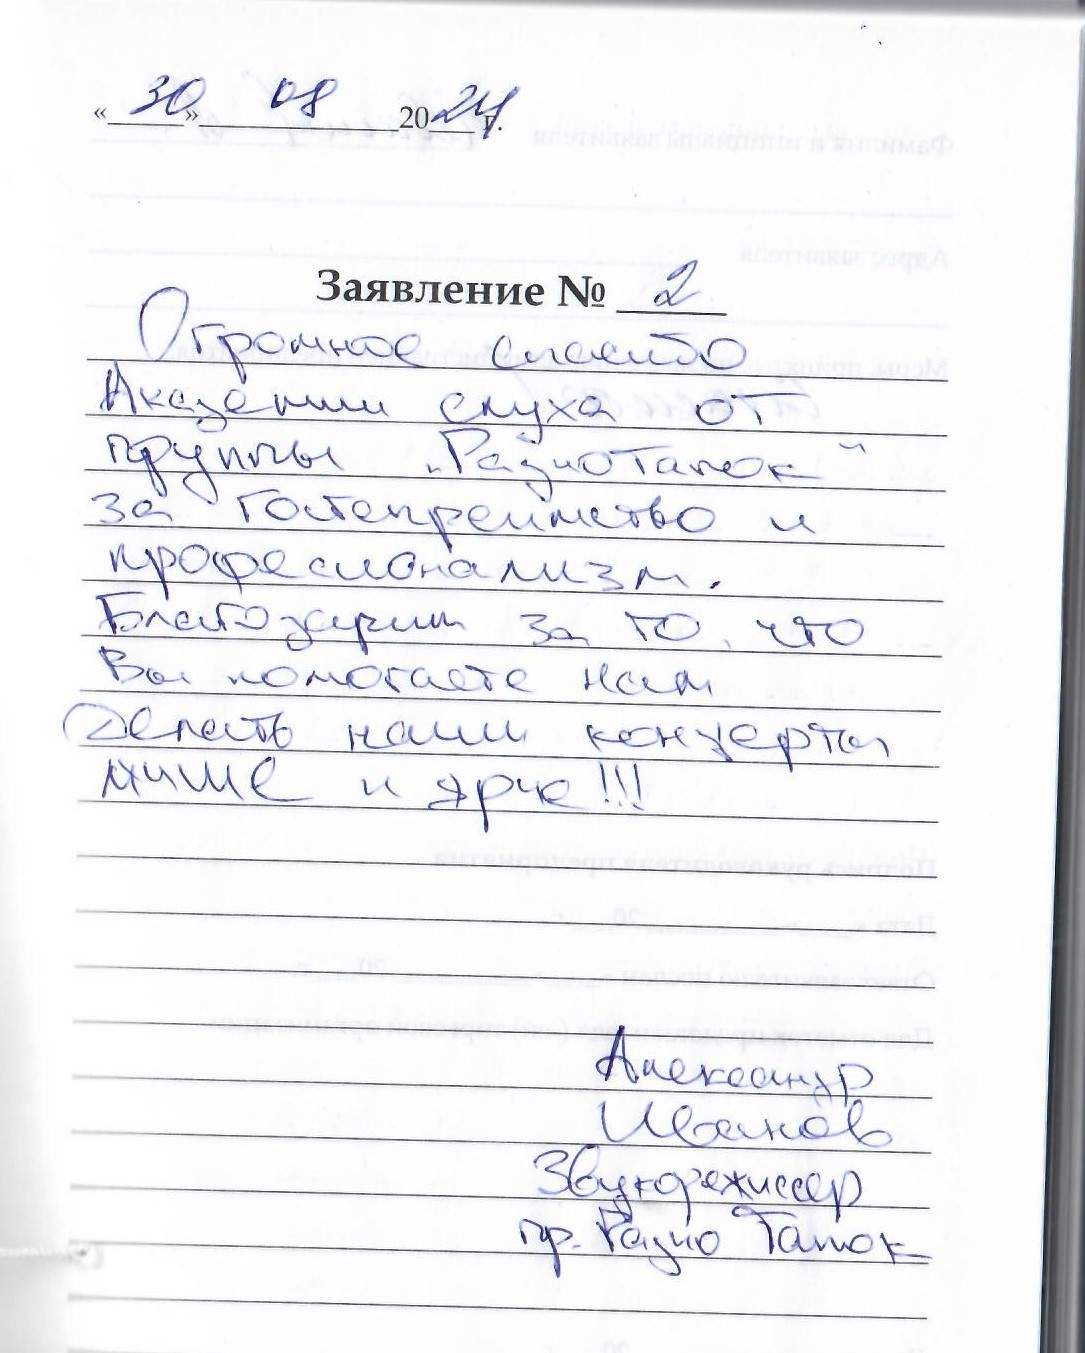 «30» 08 2024 г.
Заявление № 2
Огромное спасибо
Академии слуха от
группы „РадиоТапок“
за гостепреимство и
професионализм.
Благодарим за то, что
Вы помогаете нам
делать наши концерты
лучше и ярче!!!
Александр
Иванов
Звукорежиссер
гр. Радио Тапок